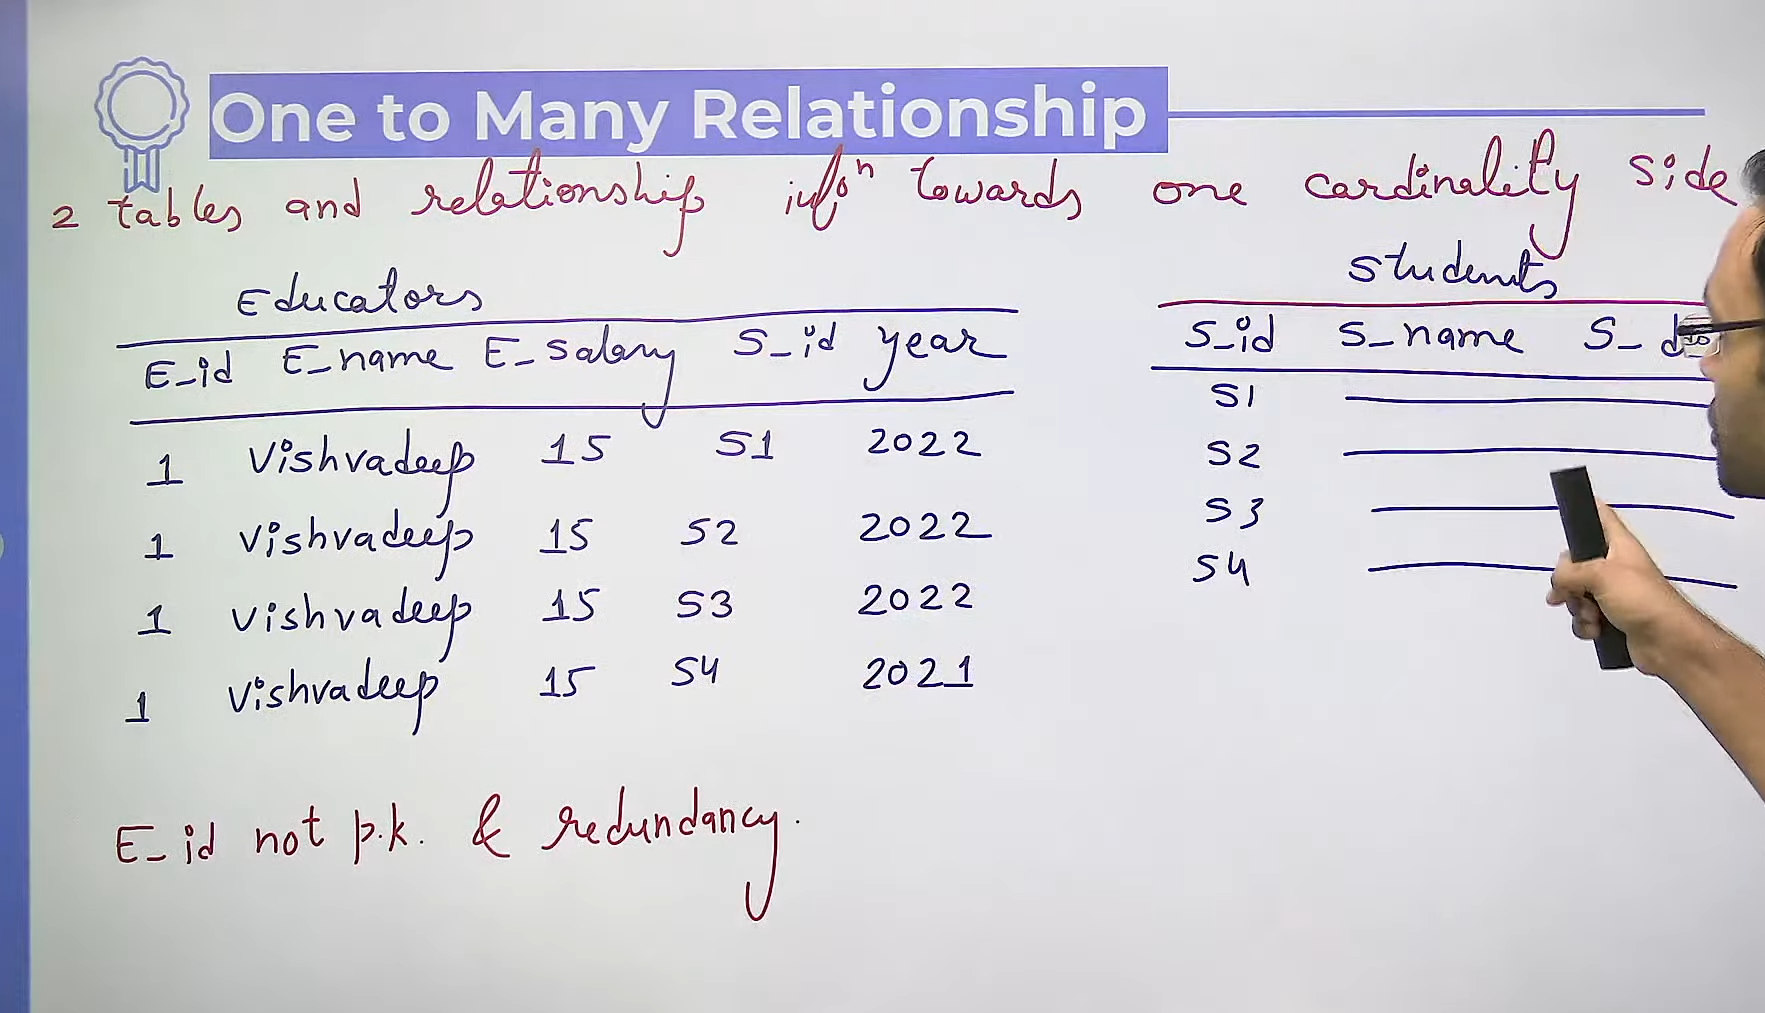 One to Many Relationship
2 tables and relationship infoⁿ towards one cardinality side
Educators
E_id E_name E_salary S_id year
1 Vishvadeep 15 S1 2022
1 Vishvadeep 15 S2 2022
1 Vishvadeep 15 S3 2022
1 Vishvadeep 15 S4 2021
E_id not p.k. & redundancy.
Students
S_id S_name S_
S1
S2
S3
S4